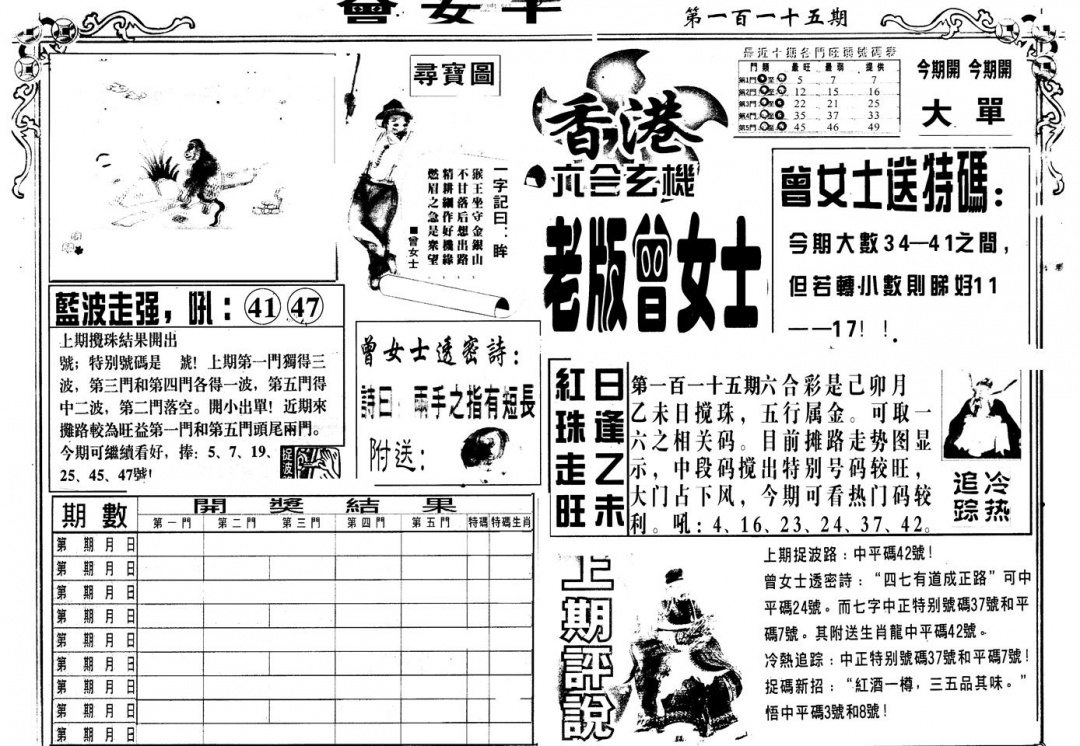 曾女士
第一百一十五期
尋寶圖
一字記曰：眸
猴王坐守金銀山
不甘落后想出路
精耕細作好機緣
燃眉之急是衆望
■曾女士
香港
六合玄機
老版曾女士
最近十期各門旺弱號碼表
門類 最旺 最弱 提供
第1門 至 5 7 7
第2門 至 12 15 16
第3門 至 22 21 25
第4門 至 35 37 33
第5門 至 45 46 49
今期開 今期開
大 單
曾女士送特碼：
今期大數34—41之間，
但若轉小數則睇好11
——17！！
藍波走强，吼：41 47
上期攪珠結果開出
號；特别號碼是 號！上期第一門獨得三
波，第三門和第四門各得一波，第五門得
中二波，第二門落空。開小出單！近期來
攤路較為旺益第一門和第五門頭尾兩門。
今期可繼續看好，捧：5、7、19、
25、45、47號！
捉波
曾女士透密詩：
詩曰：兩手之指有短長
附送：
紅珠走旺
日逢乙未
第一百一十五期六合彩是己卯月
乙未日搅珠，五行属金。可取一
六之相关码。目前摊路走势图显
示，中段码搅出特别号码较旺，
大门占下风，今期可看热门码较
利。吼：4、16、23、24、37、42。
冷热
追踪
期數
開獎結果
第一門 第二門 第三門 第四門 第五門 特碼 特碼生肖
第 期 月 日
第 期 月 日
第 期 月 日
第 期 月 日
第 期 月 日
第 期 月 日
第 期 月 日
第 期 月 日
第 期 月 日
上期評說
上期捉波路：中平碼42號！
曾女士透密詩：“四七有道成正路”可中
平碼24號。而七字中正特別號碼37號和平
碼7號。其附送生肖龍中平碼42號。
冷熱追踪：中正特别號碼37號和平碼7號！
捉碼新招：“紅酒一樽，三五品其味。”
悟中平碼3號和8號！